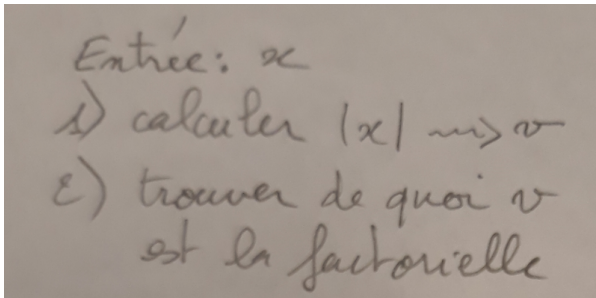 Entrée: x
1) calculer |x| ⇝ v
2) trouver de quoi v
est la factorielle